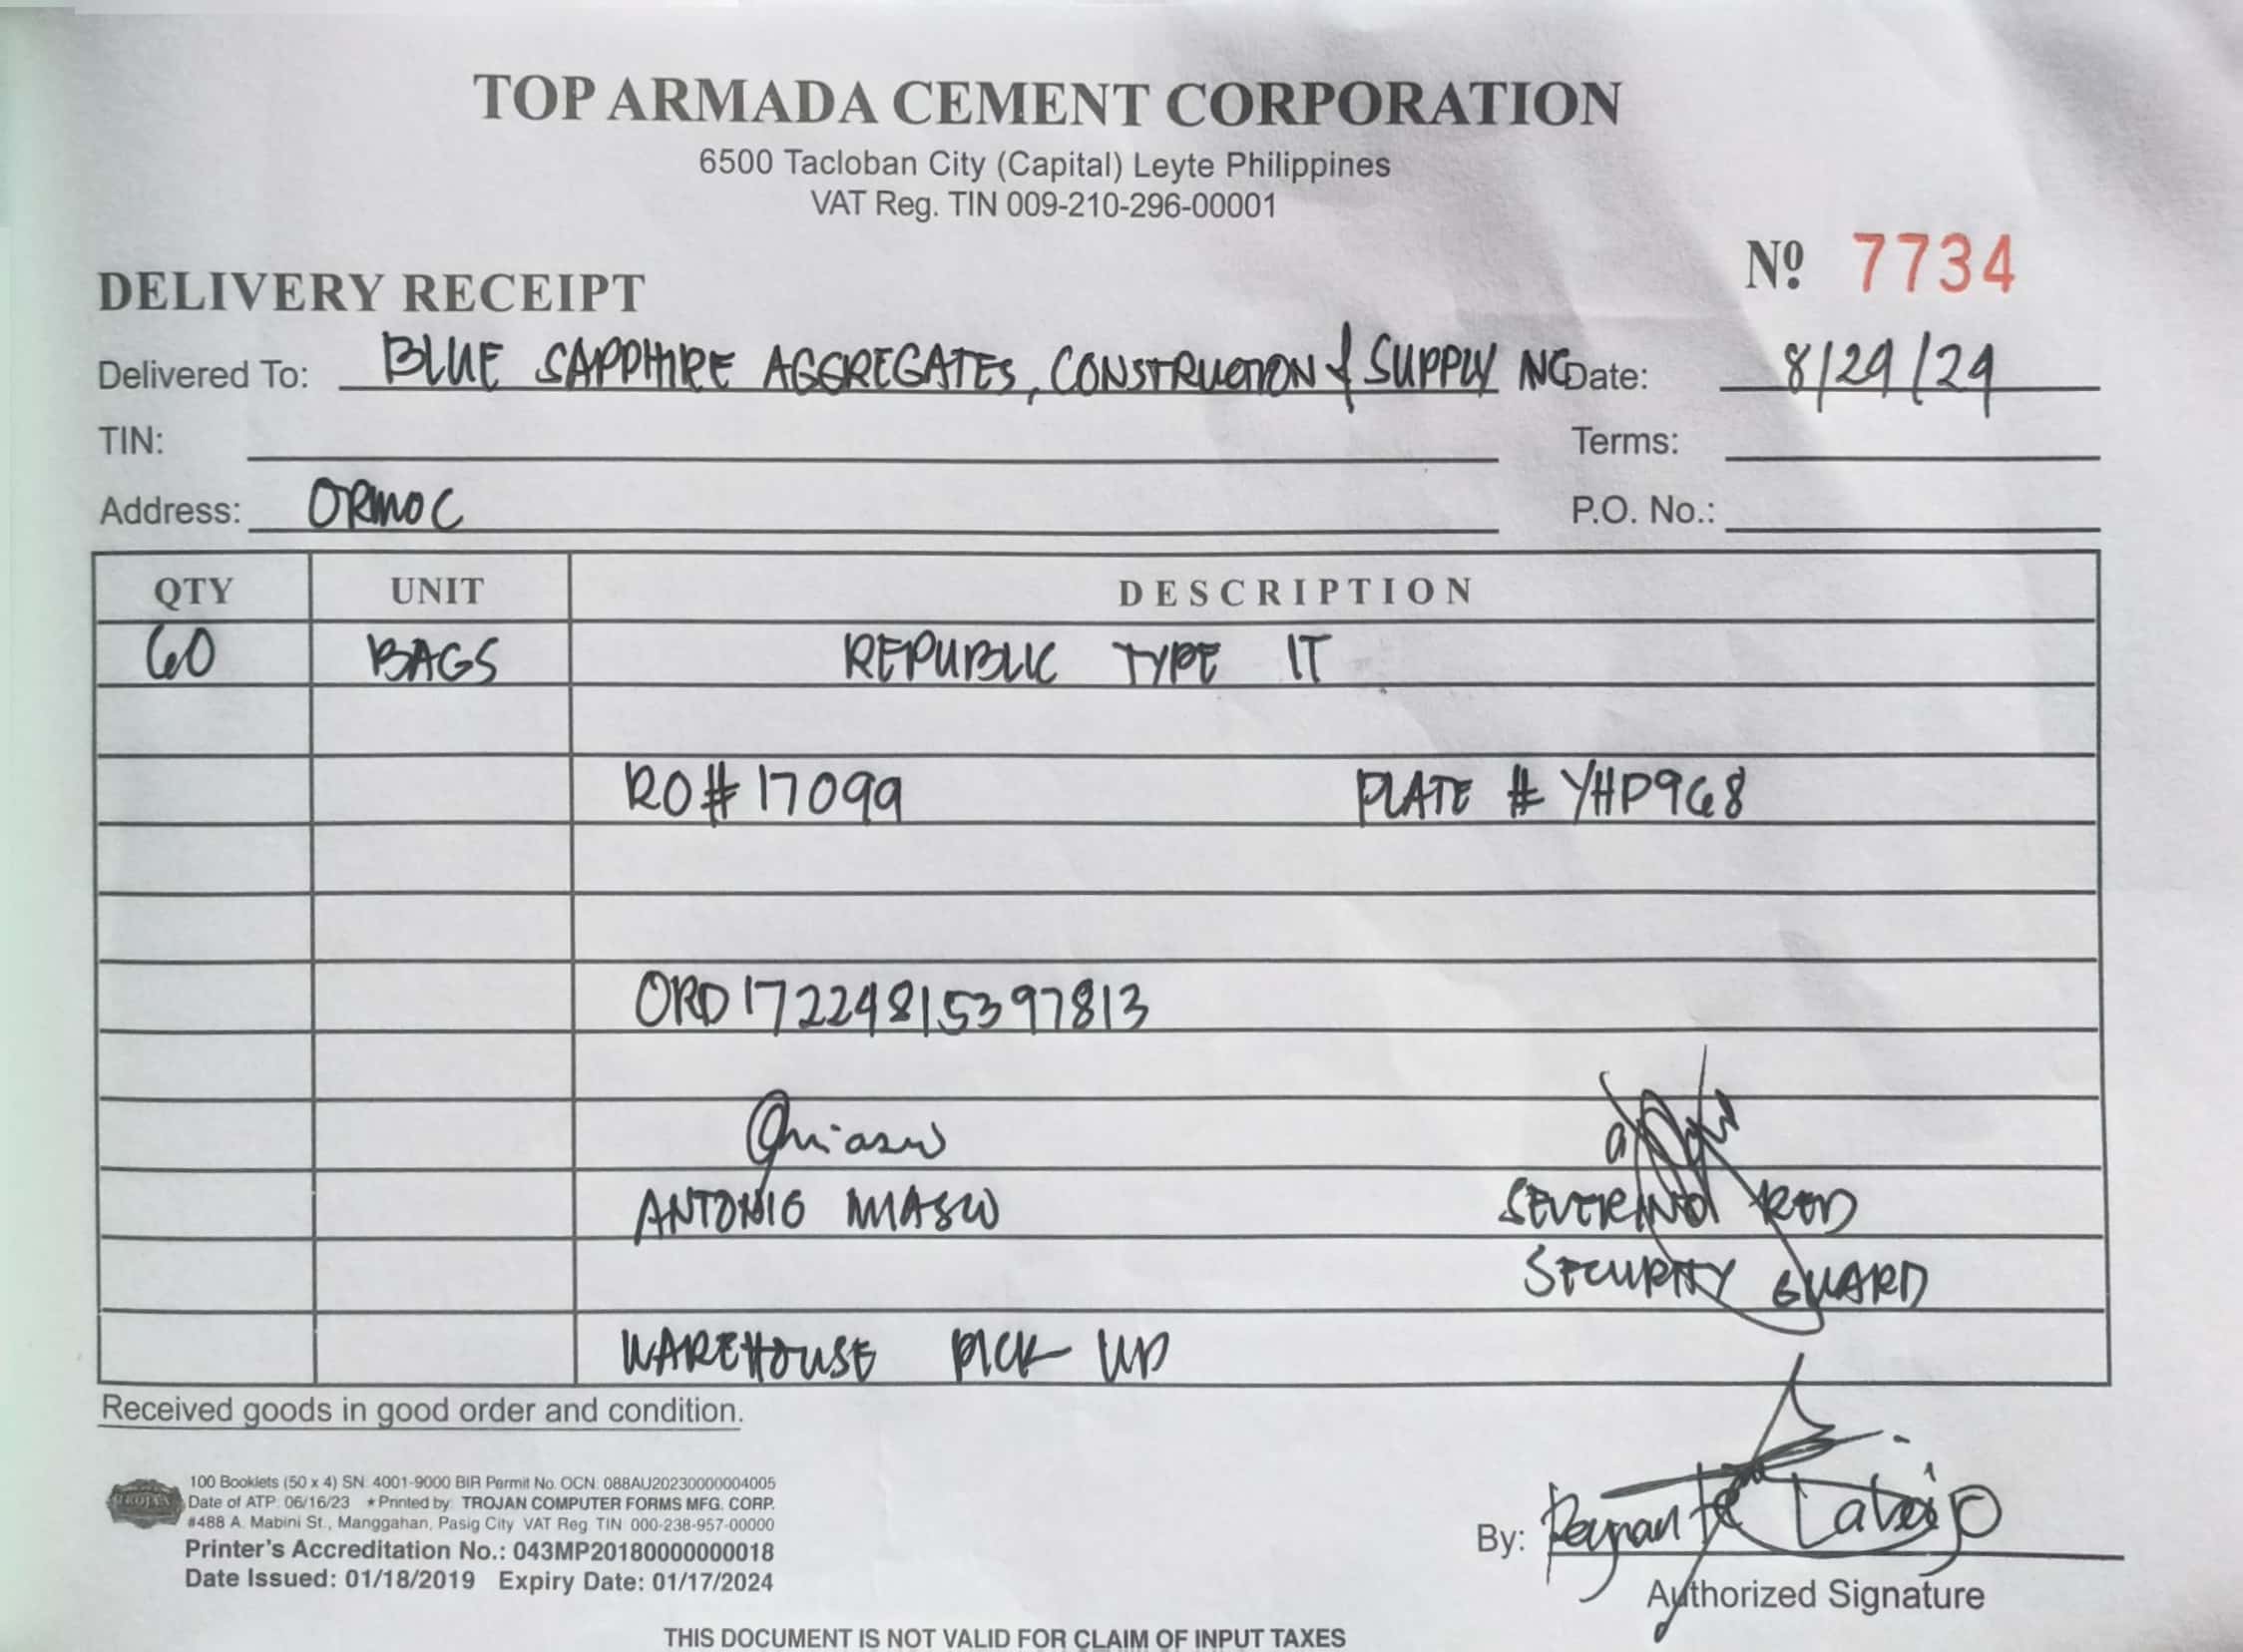 TOP ARMADA CEMENT CORPORATION
6500 Tacloban City (Capital) Leyte Philippines
VAT Reg. TIN 009-210-296-00001
Nº 7734
DELIVERY RECEIPT
Delivered To: BLUE SAPPHIRE AGGREGATES, CONSTRUCTION & SUPPLY INC Date: 8/29/24
TIN: Terms:
Address: ORMOC P.O. No.:
QTY UNIT DESCRIPTION
60 BAGS REPUBLIC TYPE IT
RO# 17099 PLATE # YHP968
ORD17224815397813
ANTONIO SEVERINO RED
SECURITY GUARD
WAREHOUSE PICK UP
Received goods in good order and condition.
TROJAN
100 Booklets (50 x 4) SN: 4001-9000 BIR Permit No. OCN: 088AU20230000004005
Date of ATP: 06/16/23 ★Printed by: TROJAN COMPUTER FORMS MFG. CORP.
#488 A. Mabini St., Manggahan, Pasig City VAT Reg TIN 000-238-957-00000
Printer's Accreditation No.: 043MP20180000000018
Date Issued: 01/18/2019 Expiry Date: 01/17/2024
By: Reynante
Authorized Signature
THIS DOCUMENT IS NOT VALID FOR CLAIM OF INPUT TAXES